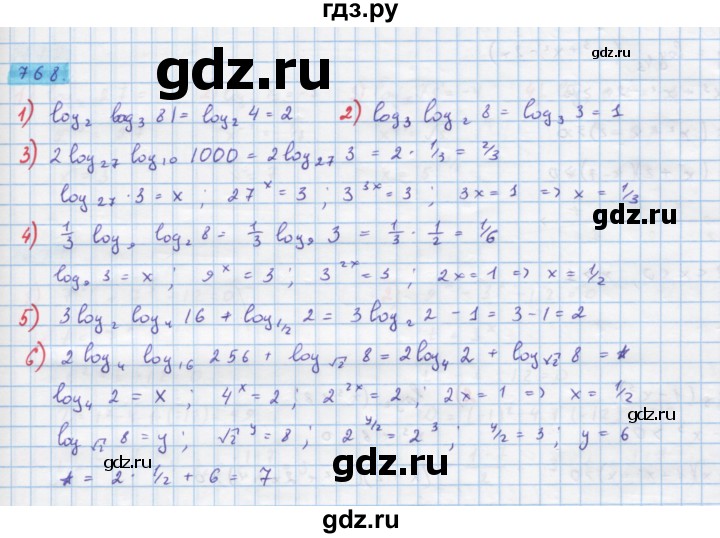 гдз.ру
768.
gdz.ru
1) log₂ log₃ 81 = log₂ 4 = 2 2) log₃ log₂ 8 = log₃ 3 = 1
3) 2 log₂₇ log₁₀ 1000 = 2 log₂₇ 3 = 2 · 1/3 = 2/3
log₂₇ · 3 = x ; 27ˣ = 3 ; 3³ˣ = 3 ; 3x = 1 => x = 1/3
gdz.ru
4) 1/3 log₉ log₂ 8 = 1/3 log₉ 3 = 1/3 · 1/2 = 1/6
log₉ 3 = x ; 9ˣ = 3 ; 3²ˣ = 3 ; 2x = 1 => x = 1/2
gdz.ru
5) 3 log₂ log₄ 16 + log₁/₂ 2 = 3 log₂ 2 - 1 = 3 - 1 = 2
6) 2 log₄ log₁₆ 256 + log√₂ 8 = 2 log₄ 2 + log√₂ 8 = *
log₄ 2 = x ; 4ˣ = 2 ; 2²ˣ = 2 ; 2x = 1 => x = 1/2
gdz.ru
log√₂ 8 = y ; √2ʸ = 8 ; 2^y/2 = 2³ ; y/2 = 3 ; y = 6
gdz.ru
gdz.ru
* = 2 · 1/2 + 6 = 7
gdz.ru